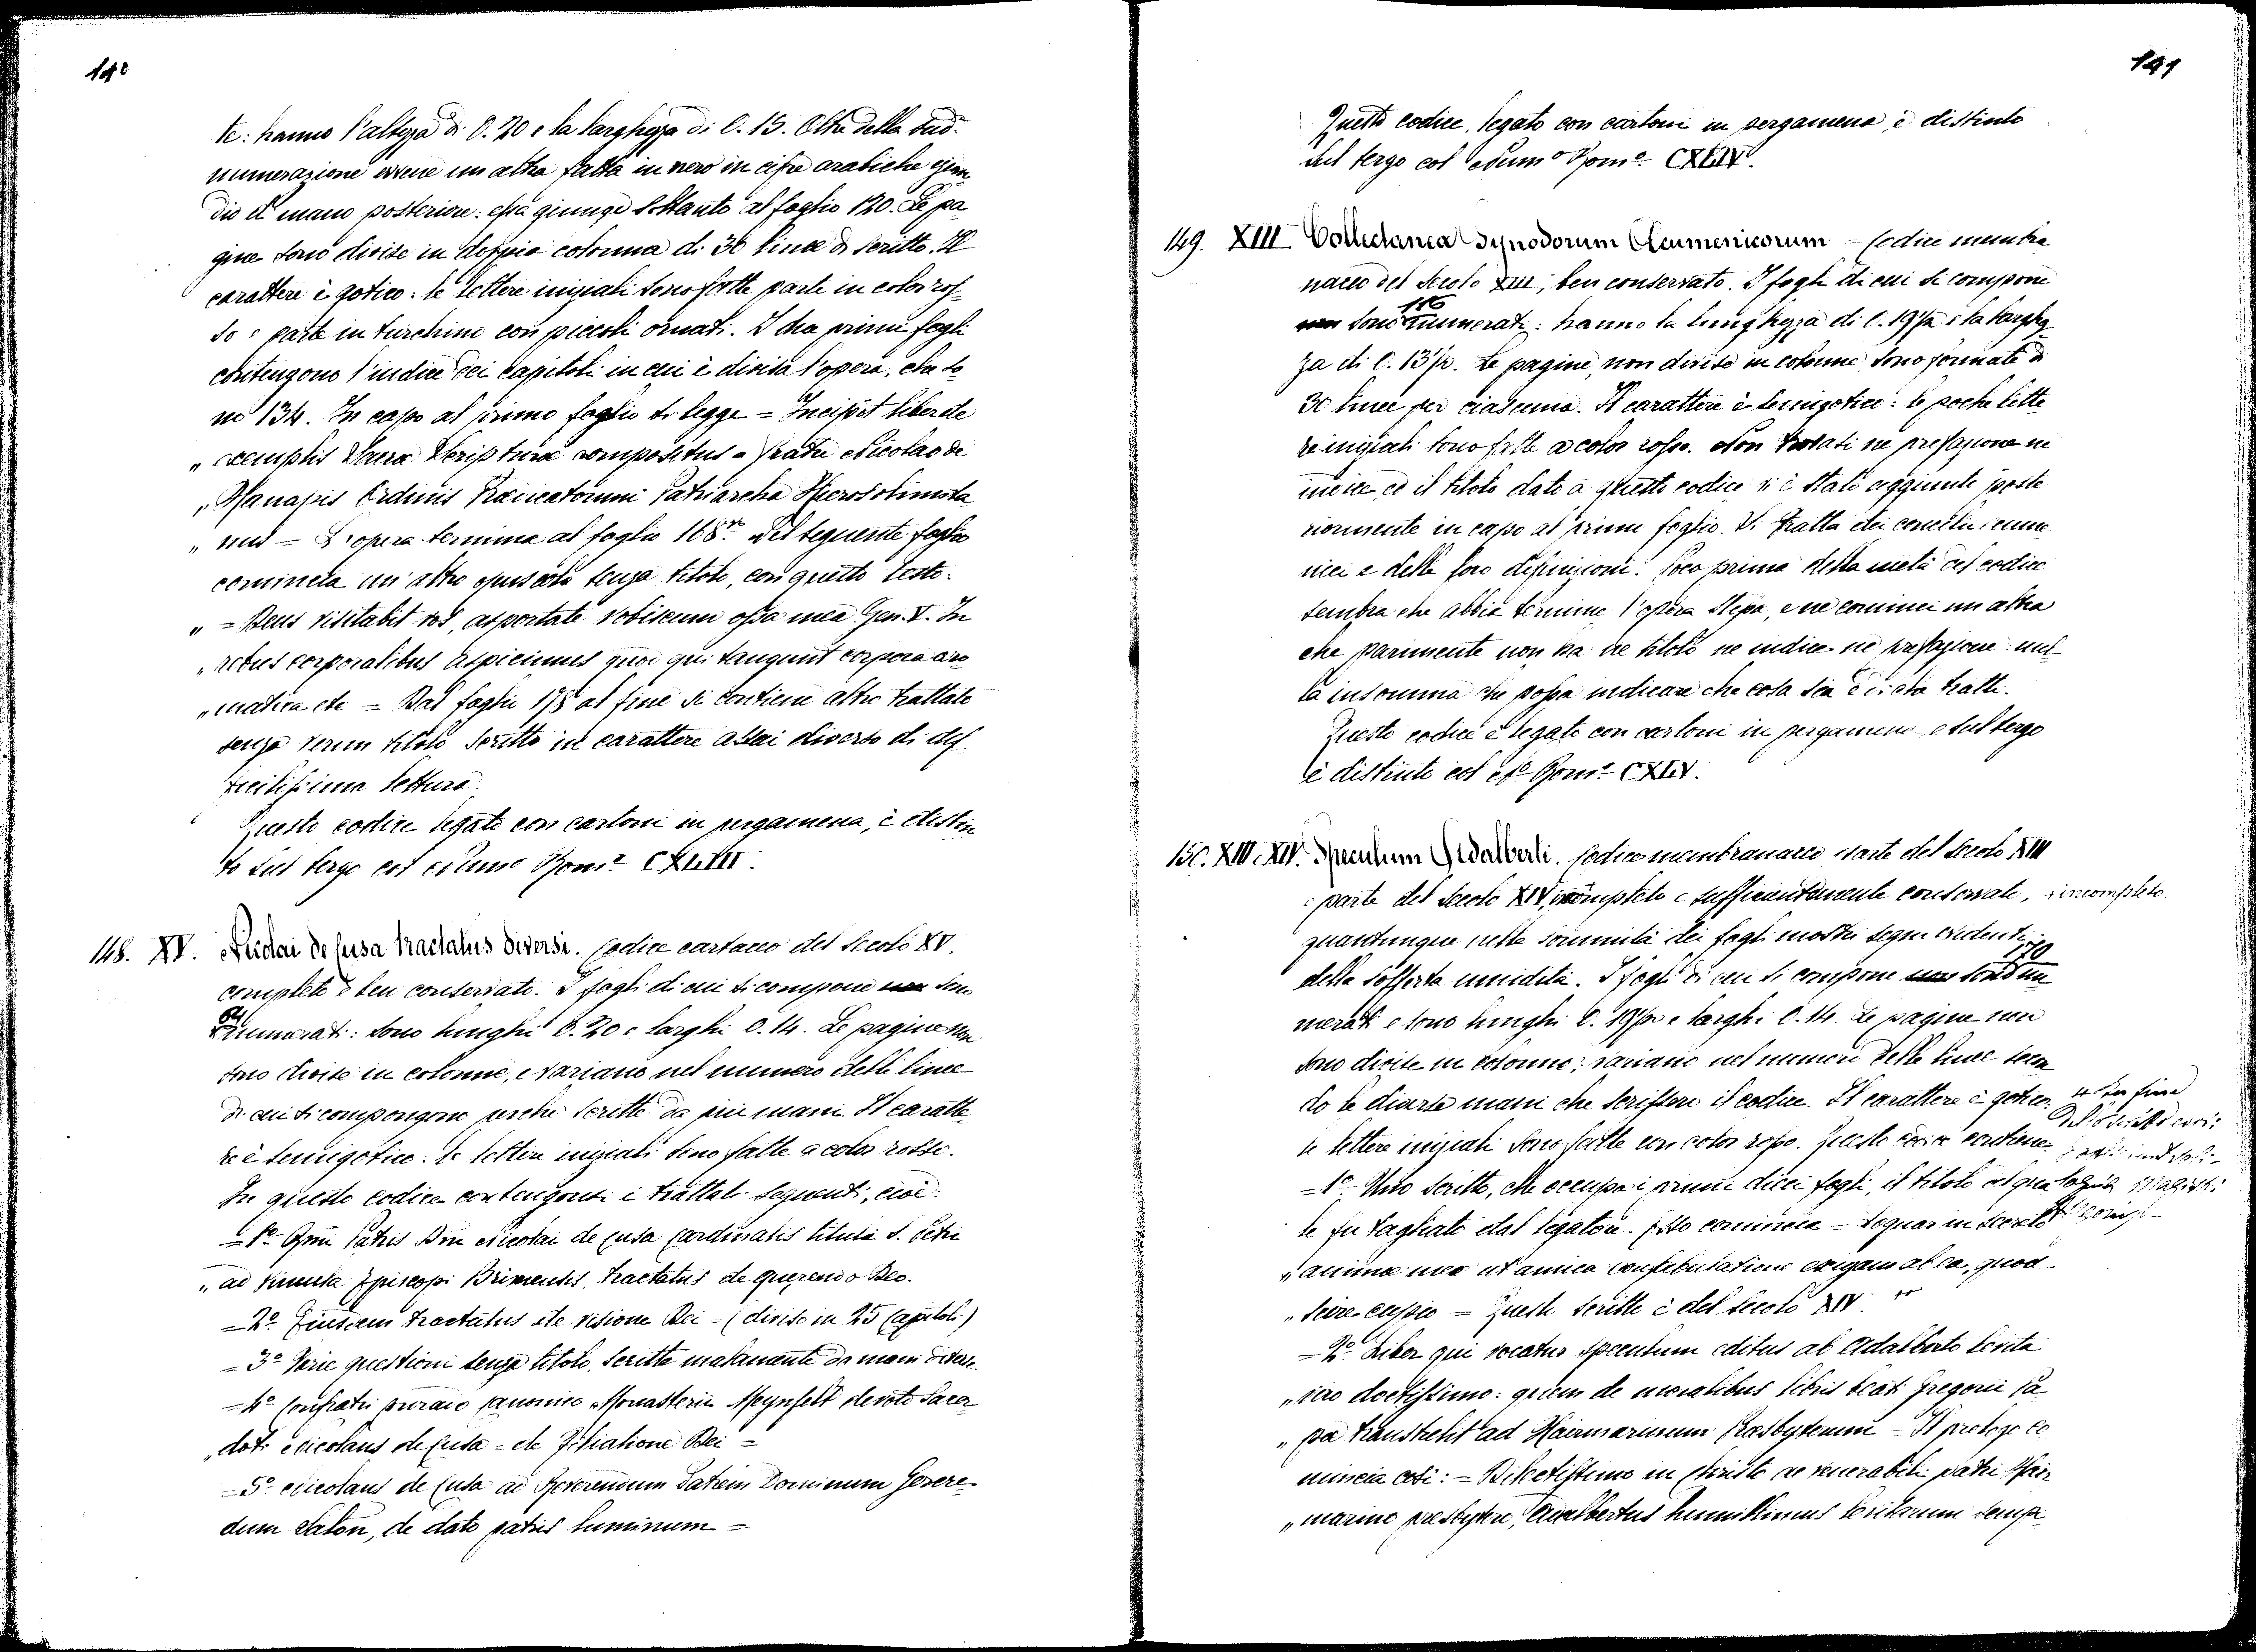 140
te: hanno l'altezza di 0. 20 e la larghezza di 0. 15. Oltre della sud.
numerazione avvene un altra fatta in nero in cifre arabiche
dio di mano posteriore: essa giunge soltanto al foglio 120. Le pa
gine sono divise in doppia colonna di 36 linee di scritto. Il
carattere è gotico: le lettere iniziali sono fatte parte in color ros-
so e parte in turchino con piccoli ornati. I due primi fogli
contengono l'indice dei capitoli in cui è divisa l'opera, che so
no 134. In capo al primo foglio si legge = Incipit liber de
„ exemplis Sacrae Scripturae compositus a fratre Nicolao de
„ Hanapis Ordinis Praedicatorum Patriarcha Hierosolimita
„ nus = L'opera termina al foglio 168.ro Nel seguente foglio
comincia un'altro opuscolo senza titolo, con questo testo:
„ = Deus visitabit vos, asportate vobiscum ossa mea Gen. V. In
„ rebus corporalibus aspicimus quod qui tangunt corpora aro
„ matica etc = Dal foglio 178 al fine si contiene altro trattato
senza verun titolo scritto in carattere assai diverso di dif
ficilissima lettura.
Questo codice legato con cartoni in pergamena, è distin
to sul tergo col Numo Romo CXLIII.
148. XV. Nicolai de Cusa tractatus diversi. Codice cartaceo del Secolo XV.
completo e ben conservato. I fogli di cui si compone non sono
numerati: sono lunghi 0. 20 e larghi 0. 14. Le pagine non
sono divise in colonne, e variano nel numero delle linee
di cui si compongono perchè scritte da più mani. Il caratte
re è semigotico: le lettere iniziali sono fatte a color rosso.
In questo codice contengonsi i trattati seguenti, cioè:
= 1o Rmi Patris Dni Nicolai de Cusa Cardinalis tituli S. Petri
„ ad vincula Episcopi Brixiensis, tractatus de querendo Deo.
= 2o Ejusdem tractatus de visione Dei = (diviso in 25 Capitoli)
= 3o Varie questioni senza titolo, scritte malamente da mani diverse.
= 4o Confratri Canonico Monasterii Meynfelt devoto Sacer
„ doti Nicolaus de Cusa = de filiatione Dei =
= 5o Nicolaus de Cusa ad Reverendum Patrem Dominum
de dato patris luminum =
141
Questo codice, legato con cartoni in pergamena, è distinto
sul tergo col Numo Romo CXLIV.
149. XIII Collectanea Synodorum Œcumenicorum = Codice membra
naceo del Secolo XIII, ben conservato. I fogli di cui si compone
116
non sono numerati: hanno la lunghezza di 0. 19½ e la larghez
za di 0. 13½. Le pagine, non divise in colonne, sono formate di
30 linee per ciascuna. Il carattere è semigotico: le poche lette
re iniziali sono fatte a color rosso. Non trovasi ne prefazione ne
indice, ed il titolo dato a questo codice vi è stato aggiunto poste
riormente in capo al primo foglio. Vi tratta dei concilii ecume
nici e delle loro definizioni. Poco prima della metà del codice
sembra che abbia termine l'opera stessa, e ne cominci un altra
che parimente non ha ne titolo ne indice ne prefazione: nul
la insomma che possa indicare che cosa sia e di che tratti.
Questo codice è legato con cartoni in pergamena e sul tergo
è distinto col No Romo CXLV.
150. XIII e XIV. Speculum Adalberti. Codice membranaceo parte del Secolo XIII
e parte del Secolo XIV, incompleto e sufficientemente conservato, + incompleto
quantunque nella sommità dei fogli mostri segni evidenti
170
della sofferta umidità. I fogli di cui si compone non sono nu
merati e sono lunghi 0. 19½ e larghi 0. 14. Le pagine non
sono divise in colonne; variano nel numero delle linee secon
do le diverse mani che scrissero il codice. Il carattere è gotico.
le lettere iniziali sono fatte con color rosso. Questo codice contiene
= 1o Uno scritto, che occupa i primi dieci fogli, il titolo al qua
le fu tagliato dal legatore. Esso comincia = Loquar in secreto
„ animae meae ut amica confabulatione exigam ab ea, quod
„ scire cupio = Questo scritto è del Secolo XIV.
= 2o Liber qui vocatur speculum editus ab Adalberto Levita
„ viro doctissimo: quem de moralibus libris beati Gregorii Pa
„ pa transtulit ad Hairmarinum Presbyterum = Il prologo co
mincia così: = Dilectissimo in Christo ac venerabili patri Hair
„ marino presbytero, Adalbertus humillimus Levitarum
In fine
Magistri